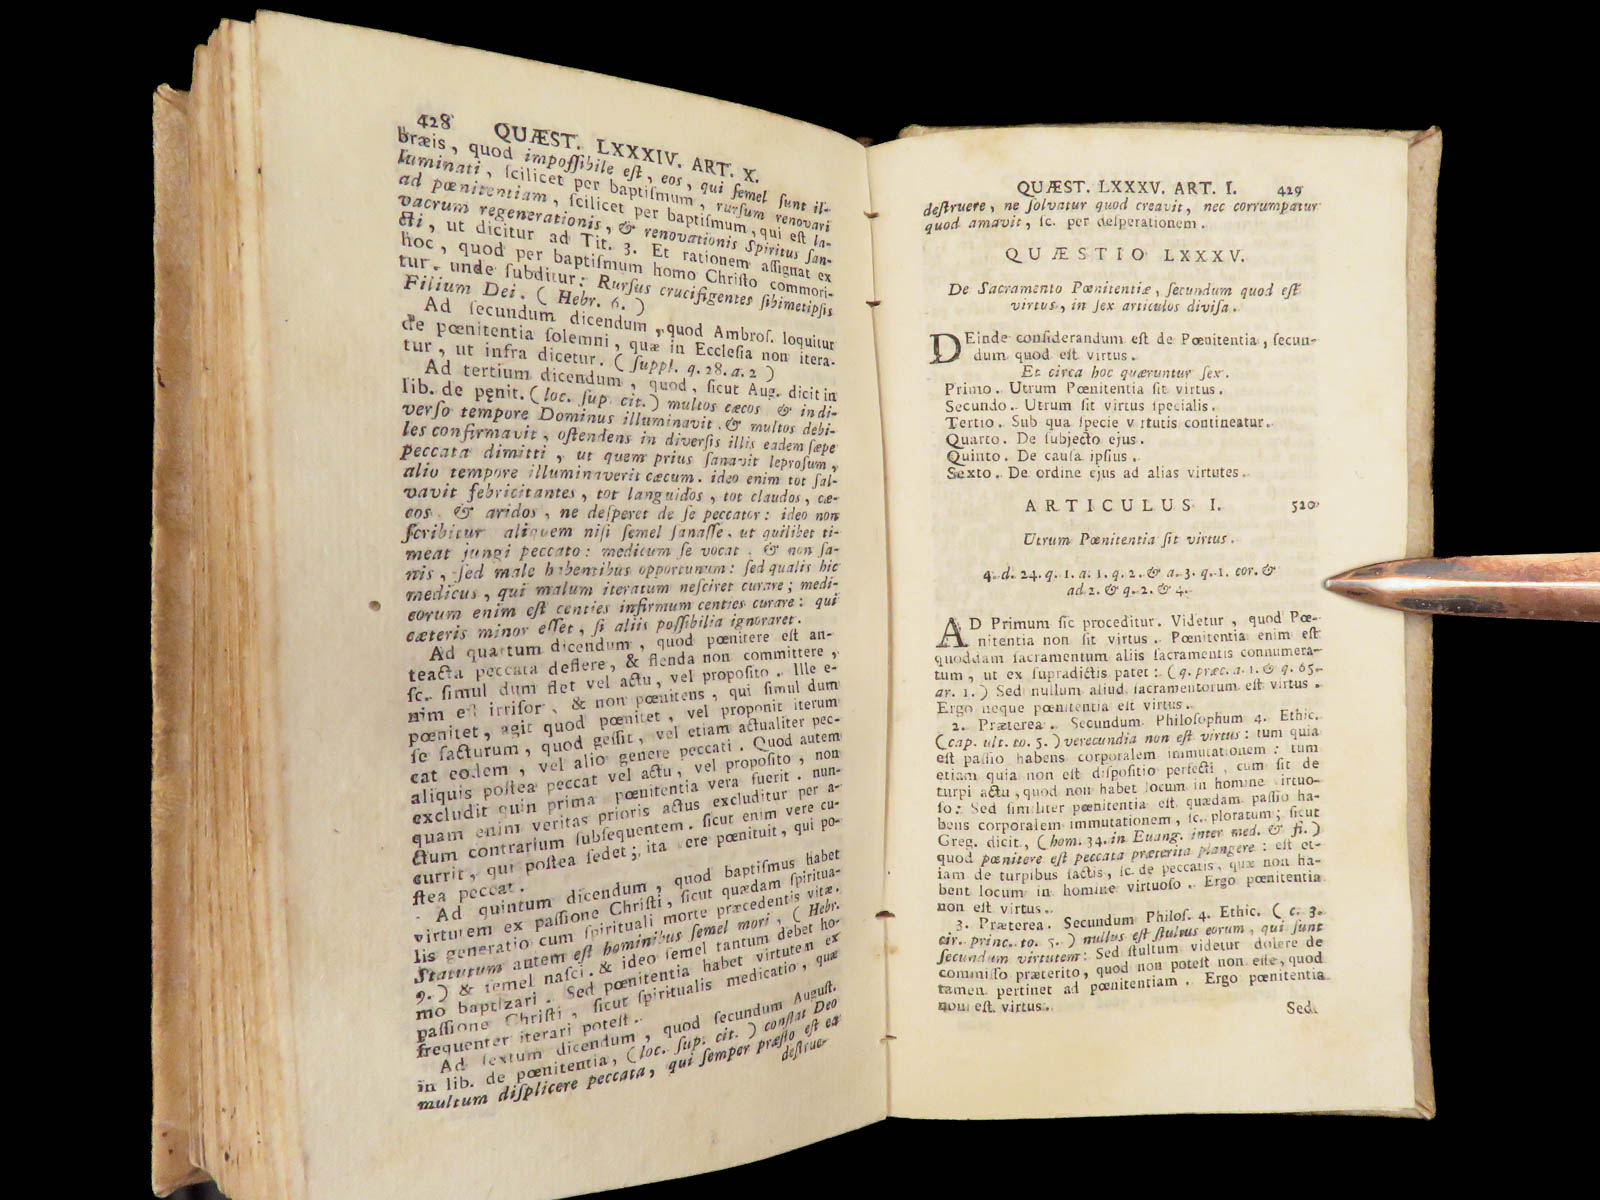 428 QUÆST. LXXXIV. ART. X.
bræis, quod impoſſibile eſt, eos, qui ſemel ſunt il-
luminati, ſcilicet per baptiſmum, rurſum renovari
ad pœnitentiam, ſcilicet per baptiſmum, qui eſt la-
vacrum regenerationis, & renovationis Spiritus ſan-
cti, ut dicitur ad Tit. 3. Et rationem aſſignat ex
hoc, quod per baptiſmum homo Chriſto commori-
tur. unde ſubditur: Rurſus crucifigentes ſibimetipſis
Filium Dei. (Hebr. 6.)
Ad ſecundum dicendum, quod Ambroſ. loquitur
de pœnitentia ſolemni, quæ in Eccleſia non itera-
tur, ut infra dicetur. (ſuppl. q. 28. a. 2)
Ad tertium dicendum, quod, ſicut Aug. dicit in
lib. de pęnit. (loc. ſup. cit.) multos cæcos & in di-
verſo tempore Dominus illuminavit. & multos debi-
les confirmavit, oſtendens in diverſis illis eadem ſæpe
peccata dimitti, ut quem prius ſanavit leproſum,
alio tempore illuminaverit cæcum. ideo enim tot ſal-
vavit febricitantes, tot languidos, tot claudos, cæ-
cos & aridos, ne deſperet de ſe peccator: ideo non
ſcribitur aliquem niſi ſemel ſanaſſe. ut quilibet ti-
meat jungi peccato: medicum ſe vocat. & non ſa-
nis, ſed male habentibus opportunum: ſed qualis hic
medicus, qui malum iteratum neſciret curare; medi-
corum enim eſt centies infirmum centies curare: qui
cæteris minor eſſet, ſi aliis poſſibilia ignoraret.
Ad quartum dicendum, quod pœnitere eſt an-
teacta peccata deflere, & flenda non committere,
ſc. ſimul dum flet vel actu, vel propoſito. Ille e-
nim eſt irriſor, & non pœnitens, qui ſimul dum
pœnitet, agit quod pœnitet, vel proponit iterum
ſe facturum, quod geſſit, vel etiam actualiter pec-
cat eodem, vel alio genere peccati. Quod autem
aliquis poſtea peccat vel actu, vel propoſito, non
excludit quin prima pœnitentia vera fuerit. nun-
quam enim veritas prioris actus excluditur per a-
ctum contrarium ſubſequentem. ſicut enim vere cu-
currit, qui poſtea ſedet; ita vere pœnituit, qui po-
ſtea peccat.
Ad quintum dicendum, quod baptiſmus habet
virtutem ex paſſione Chriſti, ſicut quædam ſpiritua-
lis generatio cum ſpirituali morte præcedentis vitæ.
Statutum autem eſt hominibus ſemel mori, (Hebr.
9.) & ſemel naſci. & ideo ſemel tantum debet ho-
mo baptizari. Sed pœnitentia habet virtutem ex
paſſione Chriſti, ſicut ſpiritualis medicatio, quæ
frequenter iterari poteſt.
Ad ſextum dicendum, quod ſecundum Auguſt.
in lib. de pœnitentia, (loc. ſup. cit.) conſtat Deo
multum diſplicere peccata, qui ſemper præſto eſt ea
deſtrue-
QUÆST. LXXXV. ART. I. 429
deſtruere, ne ſolvatur quod creavit, nec corrumpatur
quod amavit, ſc. per deſperationem.
QUÆSTIO LXXXV.
De Sacramento Pœnitentiæ, ſecundum quod eſt
virtus, in ſex articulos diviſa.
DEinde conſiderandum eſt de Pœnitentia, ſecun-
dum quod eſt virtus.
Et circa hoc quæruntur ſex.
Primo. Utrum Pœnitentia ſit virtus.
Secundo. Utrum ſit virtus ſpecialis.
Tertio. Sub qua ſpecie virtutis contineatur.
Quarto. De ſubjecto ejus.
Quinto. De cauſa ipſius.
Sexto. De ordine ejus ad alias virtutes.
ARTICULUS I. 520
Utrum Pœnitentia ſit virtus.
4. d. 24. q. 1. a. 1. q. 2. & a. 3. q. 1. cor. &
ad 2. & q. 2. & 4.
AD Primum ſic proceditur. Videtur, quod Pœ-
nitentia non ſit virtus. Pœnitentia enim eſt
quoddam ſacramentum aliis ſacramentis connumera-
tum, ut ex ſupradictis patet: (q. præc. a. 1. & q. 65.
ar. 1.) Sed nullum aliud ſacramentorum eſt virtus.
Ergo neque pœnitentia eſt virtus.
2. Præterea. Secundum Philoſophum 4. Ethic.
(cap. ult. to. 5.) verecundia non eſt virtus: tum quia
eſt paſſio habens corporalem immutationem: tum
etiam quia non eſt diſpoſitio perfecti, cum ſit de
turpi actu, quod non habet locum in homine virtuo-
ſo: Sed ſimiliter pœnitentia eſt quædam paſſio ha-
bens corporalem immutationem, ſc. ploratum; ſicut
Greg. dicit, (hom. 34. in Euang. inter med. & fi.)
quod pœnitere eſt peccata præterita plangere: eſt et-
iam de turpibus factis, ſc. de peccatis, quæ non ha-
bent locum in homine virtuoſo. Ergo pœnitentia
non eſt virtus.
3. Præterea. Secundum Philoſ. 4. Ethic. (c. 3.
cir. princ. to. 5.) nullus eſt ſtultus eorum, qui ſunt
ſecundum virtutem: Sed ſtultum videtur dolere de
commiſſo præterito, quod non poteſt non eſſe, quod
tamen pertinet ad pœnitentiam. Ergo pœnitentia
non eſt virtus.
Sed